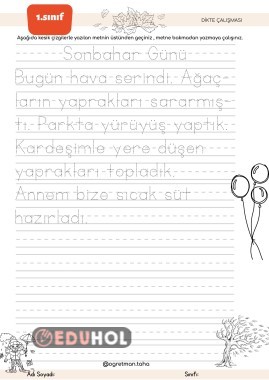 1.sınıf
DİKTE ÇALIŞMASI
Aşağıda kesik çizgilerle yazılan metnin üstünden geçiniz, metne bakmadan yazmaya çalışınız.
Sonbahar Günü
Bugün hava serindi. Ağaç-
ların yaprakları sararmış-
tı. Parkta yürüyüş yaptık.
Kardeşimle yere düşen
yaprakları topladık.
Annem bize sıcak süt
hazırladı.
EDUHOL
@ogretman.taha
Adı Soyadı: Sınıfı: